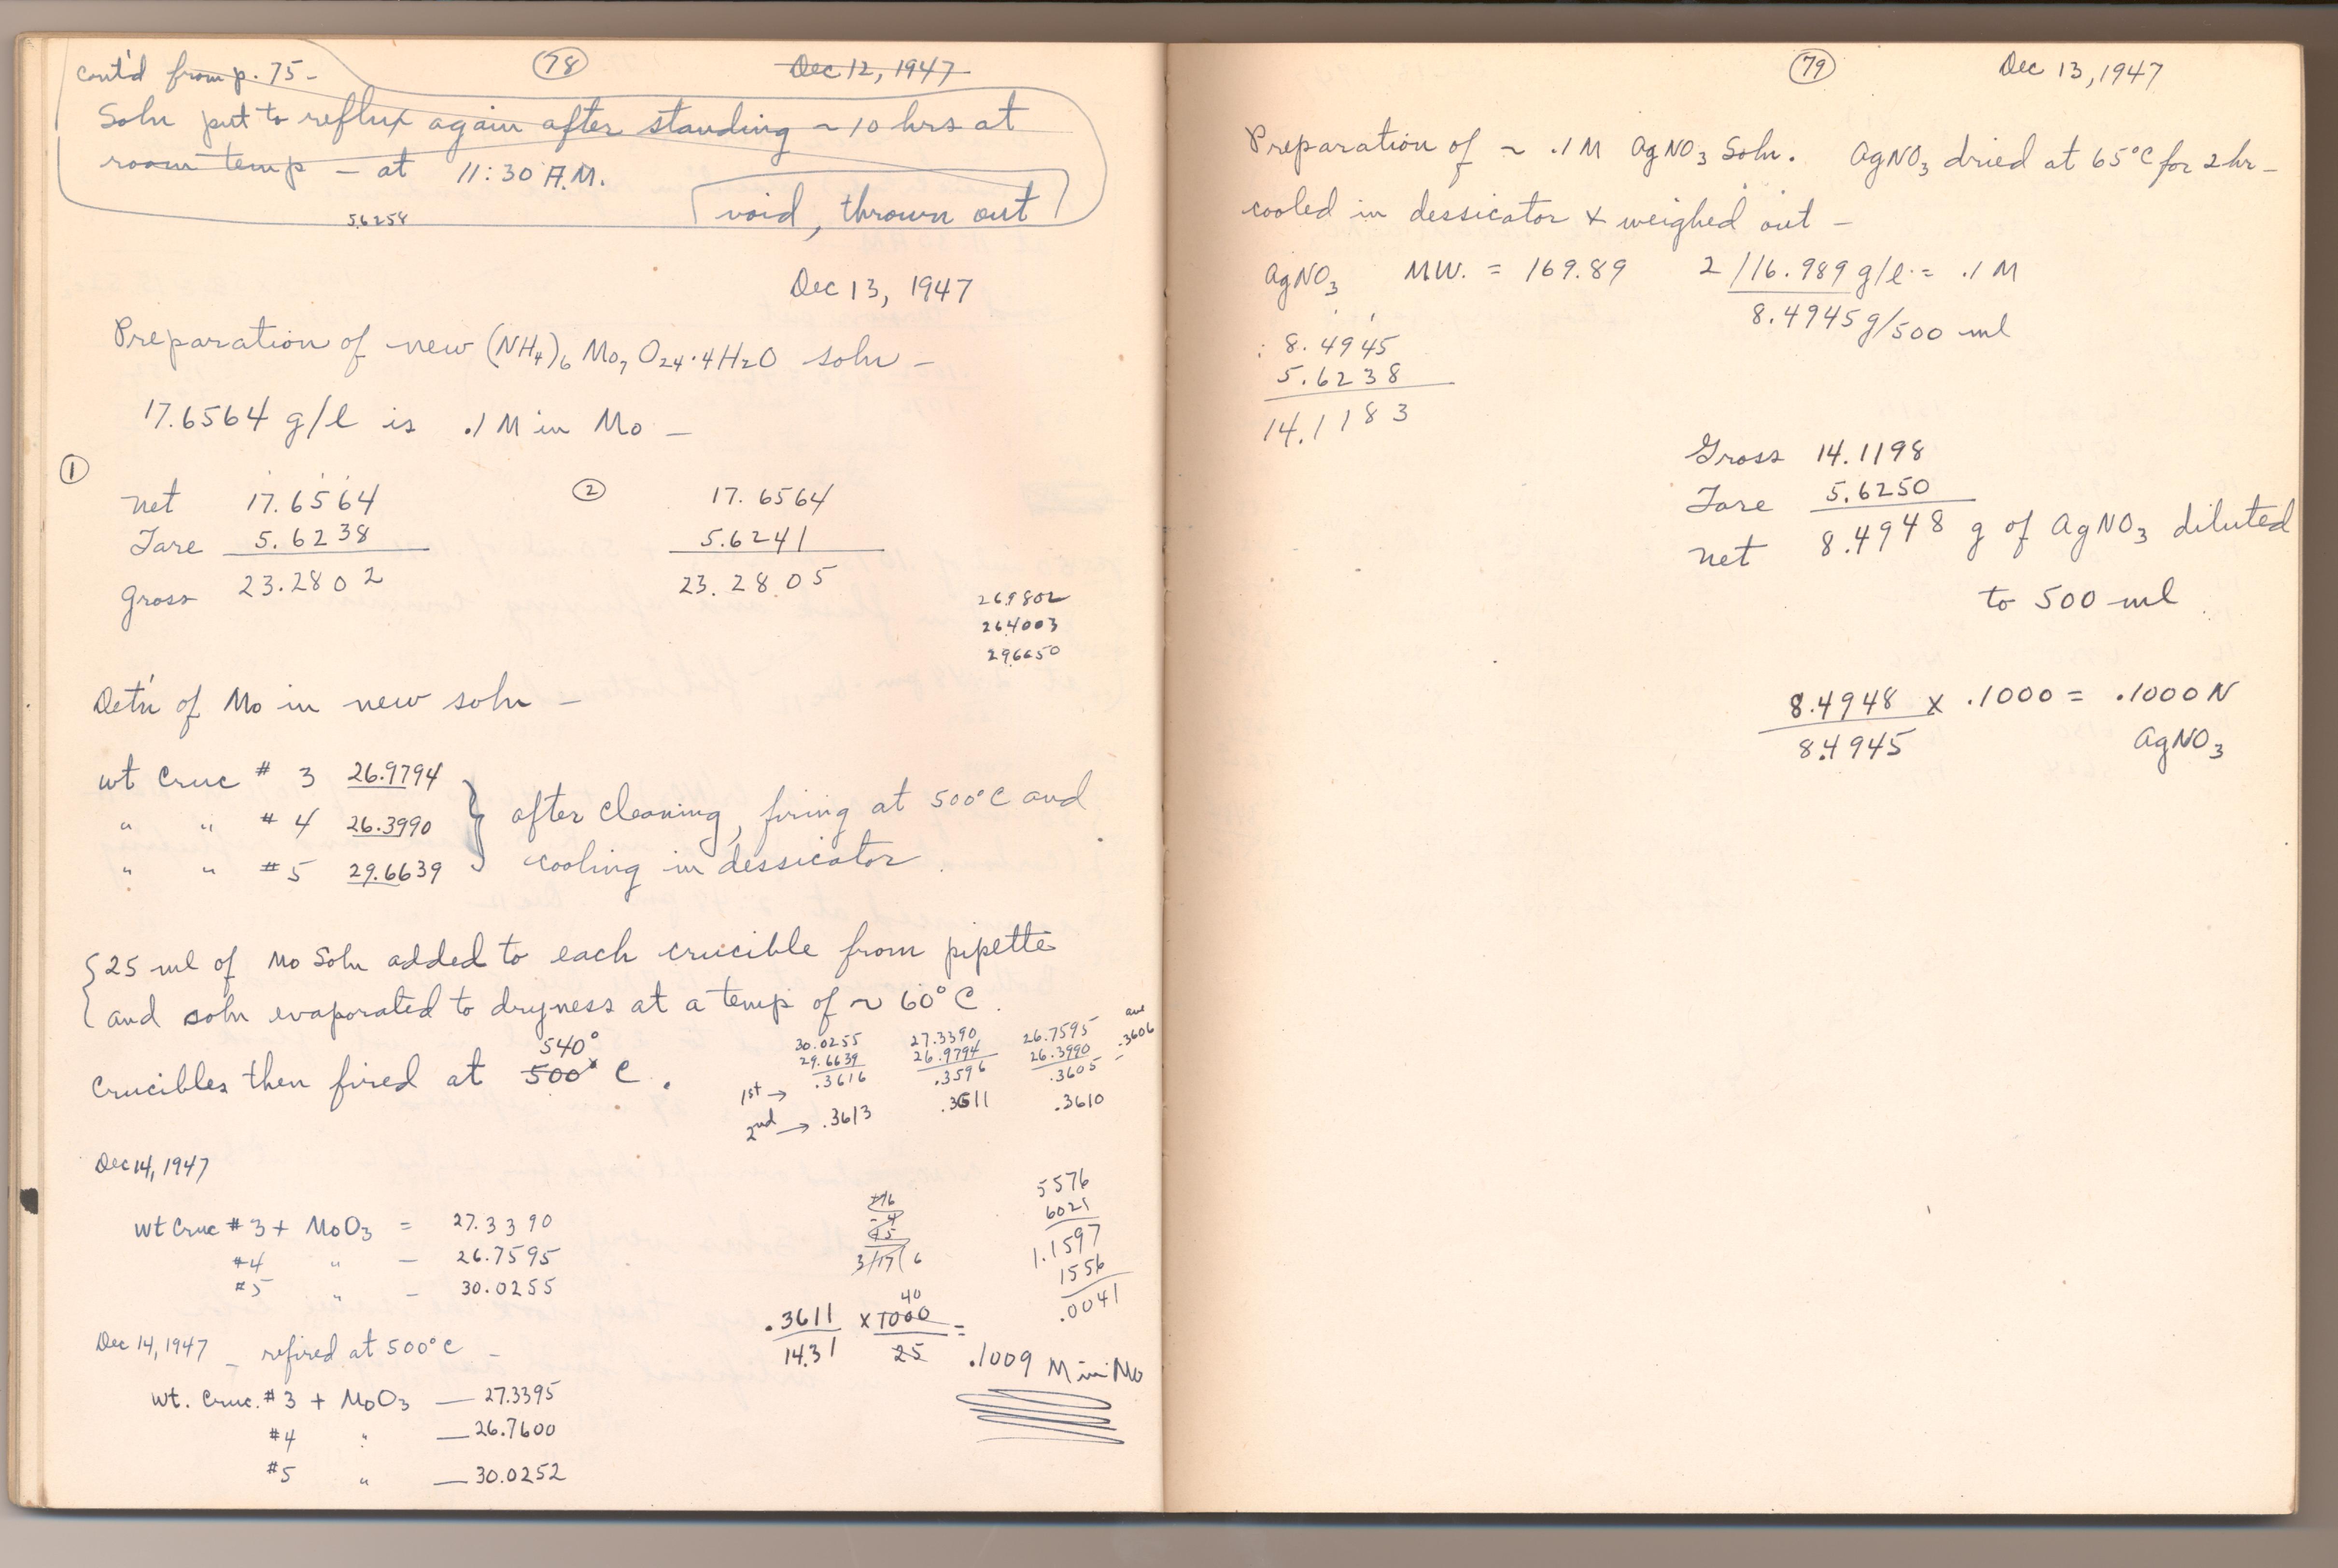 cont'd from p. 75-
78
Dec 12, 1947
Soln put to reflux again after standing ~10 hrs at
room temp - at 11:30 A.M.
5.6258
void, thrown out
Dec 13, 1947
Preparation of new (NH4)6 Mo7 O24·4H2O soln -
17.6564 g/l is .1 M in Mo -
①
Net 17.6564
Tare 5.6238
Gross 23.2802
②
17.6564
5.6241
23.2805
26.9802
26.4003
29.6650
Det'n of Mo in new soln -
wt Cruc # 3 26.9794
" " # 4 26.3990
" " # 5 29.6639
} after cleaning, firing at 500°C and
cooling in dessicator
{25 ml of Mo Soln added to each crucible from pipette
and soln evaporated to dryness at a temp of ~ 60°C.
540°
Crucibles then fired at 500° C.
30.0255 27.3390 26.7595 ave
29.6639 26.9794 26.3990 .3606
1st → .3616 .3596 .3605
2nd → .3613 .3611 .3610
Dec 14, 1947
Wt Cruc # 3 + MoO3 = 27.3390
#4 " - 26.7595
#5 " - 30.0255
5576
6021
1.1597
1556
.0041
40
.3611 x 1000 =
14.31 25
.1009 M in Mo
Dec 14, 1947 - refired at 500°C -
Wt. Cruc. # 3 + MoO3 — 27.3395
#4 " — 26.7600
#5 " — 30.0252
79
Dec 13, 1947
Preparation of ~ .1 M AgNO3 Soln. AgNO3 dried at 65°C for 2 hr -
cooled in dessicator + weighed out -
AgNO3 MW. = 169.89 2 /16.989 g/l = .1 M
8.4945 g/500 ml
8.4945
5.6238
14.1183
Gross 14.1198
Tare 5.6250
Net 8.4948 g of AgNO3 diluted
to 500 ml
8.4948 x .1000 = .1000 N
8.4945 AgNO3